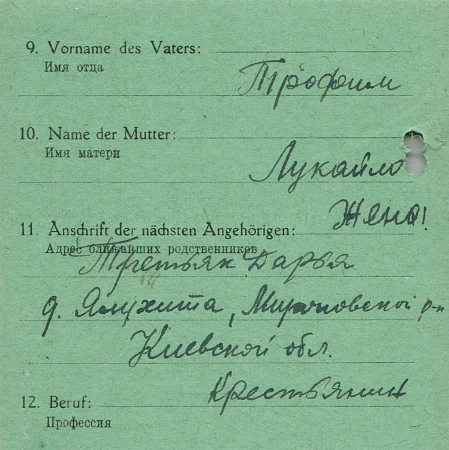 9. Vorname des Vaters:
Имя отца
Трофим
10. Name der Mutter:
Имя матери
Лукайло
Жена!
11. Anschrift der nächsten Angehörigen:
Адрес ближайших родственников
Третьяк Дарья
д. Ялухита, Мироновской р-н
Киевской обл.
Крестьянин
12. Beruf:
Профессия